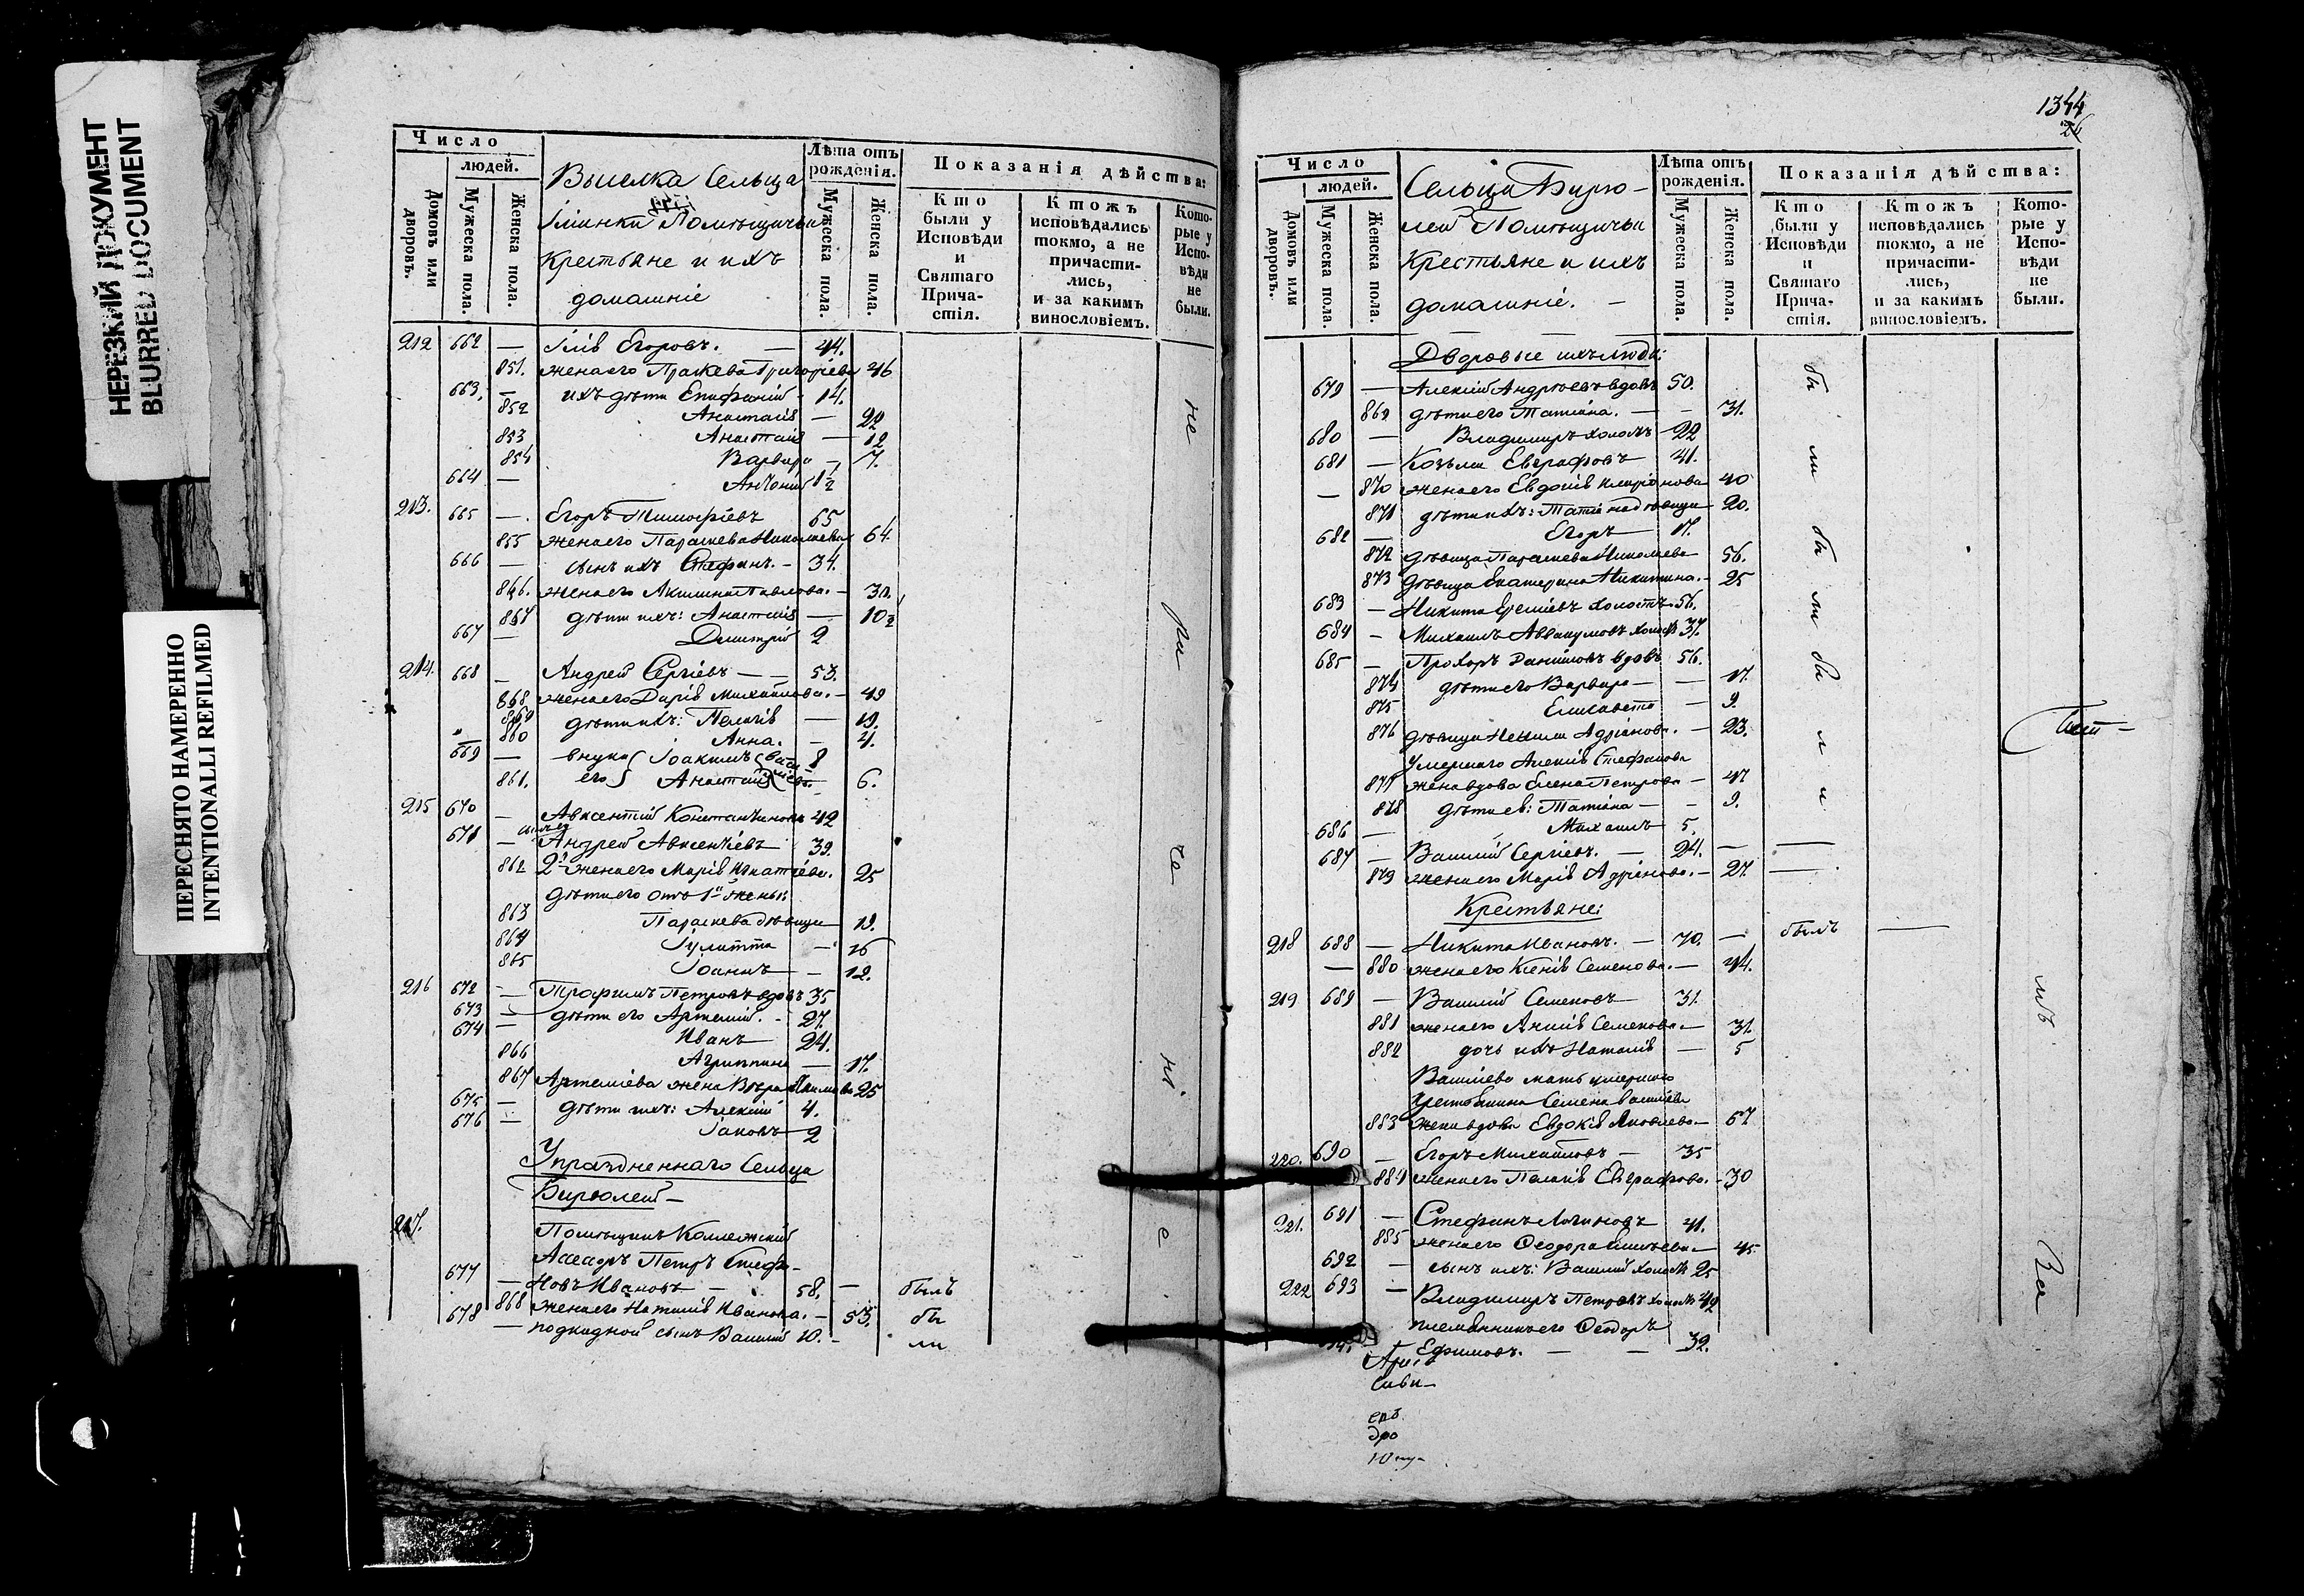 НЕРЕЗКИЙ ДОКУМЕНТ
BLURRED DOCUMENT
ПЕРЕСНЯТО НАМЕРЕННО
INTENTIONALLI REFILMED
Число
людей.
Домовъ или дворовъ.
Мужеска пола.
Женска пола.
Выселка Сельца
Помѣщичьи
Крестьяне и ихъ
домашніе
Лѣта отъ рожденія.
Мужеска пола.
Женска пола.
Показанія дѣйства:
Кто были у Исповѣди и Святаго Причастія.
Ктожъ исповѣдались токмо, а не причастились, и за какимъ винословіемъ.
Которые у Исповѣди не были.
212 662 — Егоровъ. — 44.
851. жена его Праскева Григоріева 46
663. — ихъ дѣти Епифаній - 14.
852 Анастасія — 22
853 Анастасія — 12
854 Варвара — 7.
664 — Антоній 1½
213. 665 — Егоръ Тимофіевъ 65
855 жена его Параскева Николаева 64
666 — сынъ ихъ Стефанъ. - 34.
жена его Акилина Павлова. - 30.
дѣти ихъ: Анастасія — 10½
667 — Димитрій 2
214. 668 — Андрей Сергіевъ — 53.
жена его Дарія Михайлова. - 49
дѣти ихъ: Пелагія — 19.
860 Анна. -
669 — внука его Іоакимъ 8
861. Анастасія 6.
215 670 — Авксентій Константиновъ 42
671 — Андрей Авксентіевъ 39.
862 2я жена его Марія Игнатіева. 25
дѣти его отъ 1й жены:
863 Параскева дѣвица 19.
864 Іулитта — 16
865 Іоаннъ — 12.
216 672 — Трофимъ Петровъ вдовъ 35
673 — дѣти его Артемій. - 27.
674 — Иванъ 24.
866 Агриппина — 17.
867 Артеміева жена Вѣра 25
675 — дѣти ихъ: Алексій 4.
676 — Іаковъ 2
Упраздненнаго Сельца
Бирюлей —
217. Помѣщикъ Коллежскій
Асесоръ Петръ Стефа-
677 — новъ Ивановъ — 58. — былъ
868 жена его Наталія Иванова. - 53. бы
678 — подкидной сынъ Василій 10. - ли
не ри ча ні е
1344
26
Число
людей.
Домовъ или дворовъ.
Мужеска пола.
Женска пола.
Сельца Бирю-
лей Помѣщичьи
Крестьяне и ихъ
домашніе. —
Лѣта отъ рожденія.
Мужеска пола.
Женска пола.
Показанія дѣйства:
Кто были у Исповѣди и Святаго Причастія.
Ктожъ исповѣдались токмо, а не причастились, и за какимъ винословіемъ.
Которые у Исповѣди не были.
Дворовые ихъ люди:
679 — Алексій Андреевъ вдовъ 50.
869 дѣти его Татіана. — 31.
680 — Владимиръ холостъ 22
681 — Козьма Евграфовъ 41.
870 жена его Евдокія Иларіонова 40
871 дѣти ихъ: Татіана дѣвица 20.
682 — Егоръ 17.
872 дѣвица Параскева Николаева 56.
873 дѣвица Екатерина Никитина. - 25
683 — Никита Еремѣевъ холостъ 56.
684 — Михаилъ Аввакумовъ холостъ 37.
685 — Прохоръ Даниловъ вдовъ 56.
874 дѣти его Варвара — 17.
875 Елисавета — 9.
876 дѣвица Адріанова. — 23.
умершаго Алексія Стефанова
877 жена вдова Елена Петрова — 47
878 дѣти ея: Татіана — 9.
686 — Михаилъ 5.
687 — Василій Сергіевъ. — 24. —
879 жена его Марія Адріанова. - 27. —
бы ли бы ли бы л и
Крестьяне:
218 688 — Никита Ивановъ. — 70. — былъ —
880 жена его Ксенія Семенова. — 44.
219 689 — Василій Семеновъ 31.
881 жена его Семенова — 31.
882 дочь ихъ Наталія — 5
Василіева мать умершаго
крестьянина Семена Василіева
883 жена вдова Евдокія Яковлева — 67
220. 690 — Егоръ Михайловъ — 35
884 жена его Пелагія Евграфова. - 30
221. 691 — Стефанъ Логиновъ 41.
885 жена его Ѳеодора 45.
692 — сынъ ихъ: Василій холостъ 25
222 693 — Владимиръ Петровъ холостъ 42
племянникъ его Ѳеодоръ
Ефимовъ. — — 32.